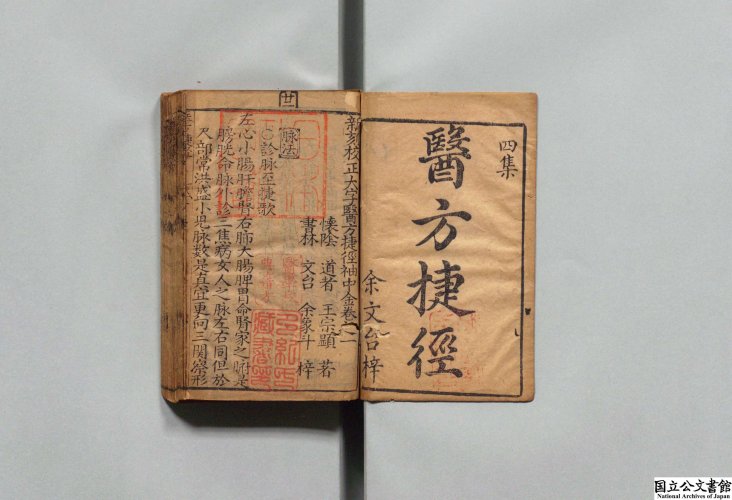 四集
醫方捷徑
余文台梓
廿
新刻校正大字醫方捷徑袖中金卷之二
懷陰 道者 王宗顯 著
書林 文台 余象斗 梓
脉法
○診脉至捷歌
左心小腸肝膽腎右肺大腸脾胃命腎家之腑是
膀胱命脉外診三焦病女人之脉左右同但於
尺部常洪盛小児脉数是真宜更向三関察形
国立公文書館
National Archives of Japan